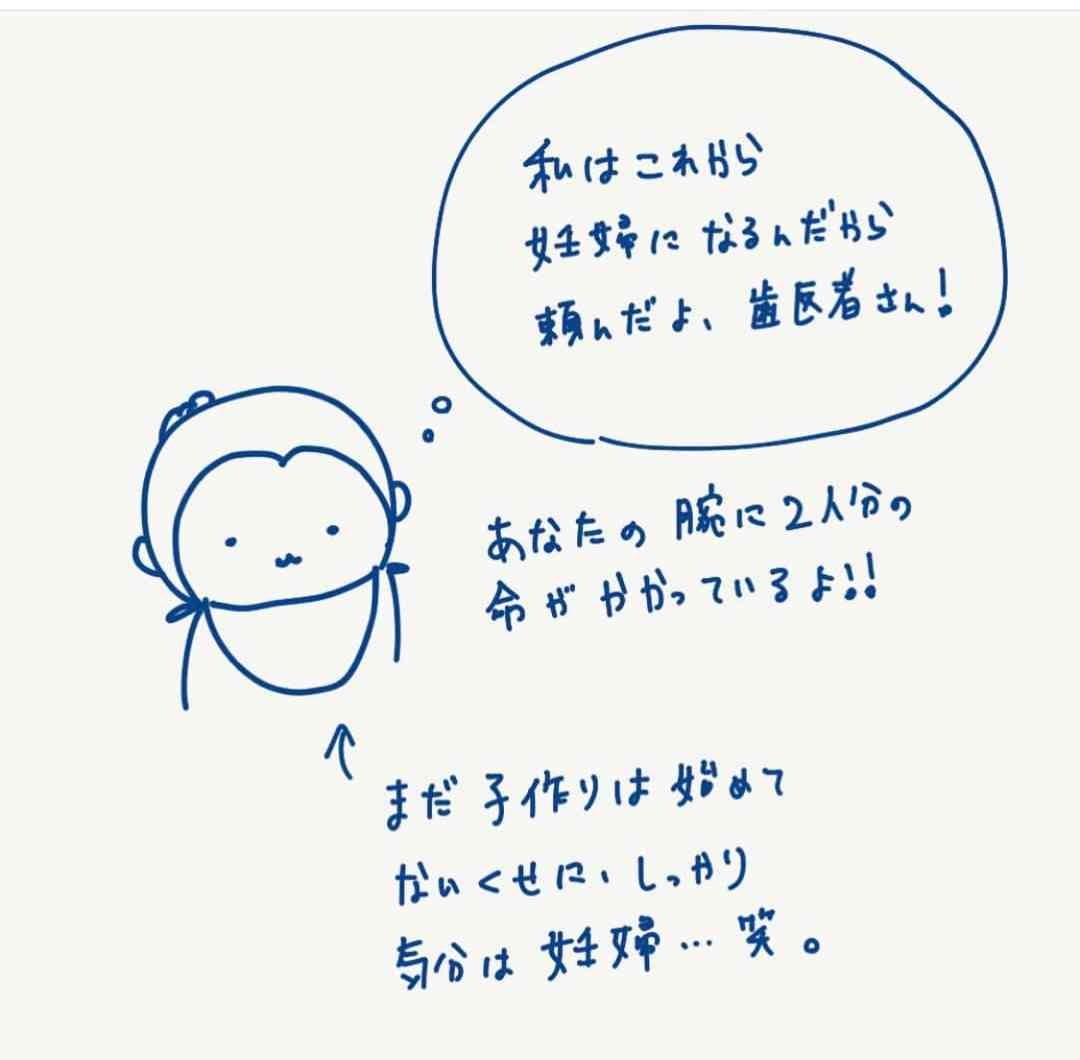 私はこれから
妊婦になるんだから
頼んだよ、歯医者さん!
あなたの腕に2人分の
命がかかっているよ!!
まだ子作りは始めて
ないくせに、しっかり
気分は妊婦…笑。